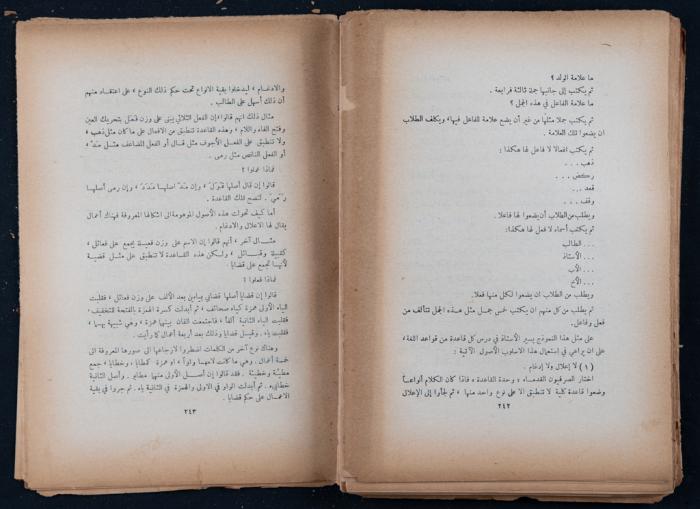 ما علامة الولد ؟
ثم يكتب إلى جانبها جملا ثالثة فرابعة .
ما علامة الفاعل في هذه الجمل ؟
ثم يكتب جملا مثلها من غير أن يضع علامة للفاعل فيها، ويكلف الطلاب
ان يضعوا تلك العلامة .
ثم يكتب افعالا لا فاعل لها هكذا :
ذهب . . .
ركض . . .
قعد . . .
وقف . . .
ويطلب من الطلاب أن يضعوا لها فاعلا .
ثم يكتب أسماء لا فعل لها هكذا:
. . . الطالب
. . . الأستاذ
. . . الأب
. . . الأخ
ويطلب من الطلاب ان يضعوا لكل منها فعلا.
ثم يطلب من كل منهم ان يكتب خمس جمل مثل هذه الجمل تتألف من
فعل وفاعل.
على مثل هذا النموذج يسير الأستاذ في درس كل قاعدة من قواعد اللغة ،
على ان يراعي في استعمال هذا الاسلوب الأصول الآتية :
( ١ ) لا إعلال ولا إدغام .
اختار الصرفيون القدماء ، وحدة القاعدة ، فاذا كان الكلام أنواعاً
وضعوا قاعدة كلية لا تنطبق الا على نوع واحد منها ، ثم لجأوا إلى الإعلال
٢٤٢
والادغام ، ليدخلوا بقية الانواع تحت حكم ذلك النوع ، على اعتقاد منهم
أن ذلك أسهل على الطالب .
مثال ذلك انهم قالوا: إن الفعل الثلاثي يبنى على وزن فعل بتحريك العين
وفتح الفاء واللام ، وهذه القاعدة تنطبق من الافعال على ما كان مثل ذهب ،
ولا تنطبق على الفعل الأجوف مثل قال أو الفعل المضاعف مثل مدّ ،
أو الفعل الناقص مثل رمى .
فماذا عملوا ؟
قالوا إن قال أصلها قَوَلَ ، وإن مدّ اصلها مَدَدَ ، وإن رمى أصلها
رَمَيَ . لتصح تلك القاعدة .
أما كيف تحولت هذه الأصول الموهومة الى اشكالها المعروفة فهناك أعمال
يقال لها الاعلال والادغام .
مثال آخر ، أنهم قالوا إن الاسم على وزن فعيلة يجمع على فعائل ،
كقبيلة وقبائل ، ولكن هذه القاعدة لا تنطبق على مثل قضية
لأنها تجمع على قضايا .
فماذا فعلوا ؟
قالوا إن قضايا أصلها قضايي بياءين بعد الألف على وزن فعائل ، فقلبت
الياء الأولى همزة كياء صحائف ، ثم أبدلت كسرة الهمزة بالفتحة للتخفيف.
فقلبت الياء الثانية ألفاً ، فاجتمعت الفان بينهما همزة ، وهي شبيهة بهما ،
فقلبت ياء . وقيل قضايا وذلك بعد أربعة أعمال كما رأيت .
وهناك نوع آخر من الكلمات اضطروا لارجاعها الى صورها المعروفة الى
خمسة أعمال . وهي ما كانت لامها واواً ، او همزة كمطايا ، وخطايا ، جمع
مطية وخطيئة . فقد قالوا إن أصل الأولى منها مطايو . وأصل الثانية
خطايىء . ثم ابدلت الواو في الاولى والهمزة في الثانية ياء . ثم جروا في بقية
الاعمال على حكم قضايا .
٢٤٣